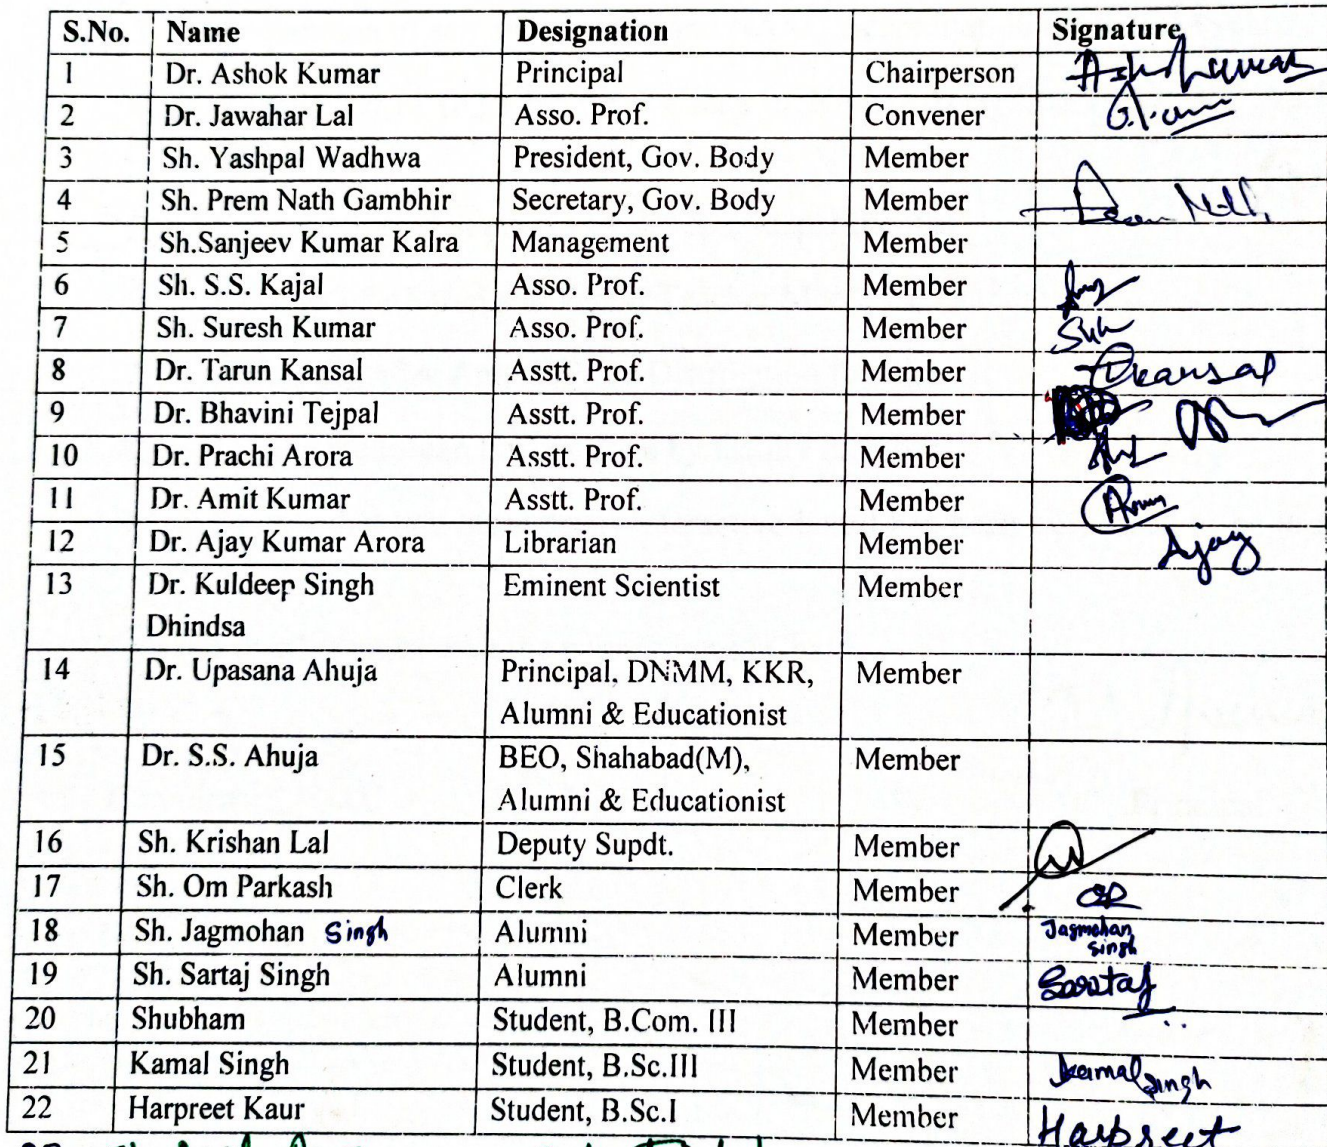 S.No. Name Designation Signature
1 Dr. Ashok Kumar Principal Chairperson
2 Dr. Jawahar Lal Asso. Prof. Convener
3 Sh. Yashpal Wadhwa President, Gov. Body Member
4 Sh. Prem Nath Gambhir Secretary, Gov. Body Member
5 Sh.Sanjeev Kumar Kalra Management Member
6 Sh. S.S. Kajal Asso. Prof. Member
7 Sh. Suresh Kumar Asso. Prof. Member
8 Dr. Tarun Kansal Asstt. Prof. Member
9 Dr. Bhavini Tejpal Asstt. Prof. Member
10 Dr. Prachi Arora Asstt. Prof. Member
11 Dr. Amit Kumar Asstt. Prof. Member
12 Dr. Ajay Kumar Arora Librarian Member Ajay
13 Dr. Kuldeep Singh Eminent Scientist Member
Dhindsa
14 Dr. Upasana Ahuja Principal, DNMM, KKR, Member
Alumni & Educationist
15 Dr. S.S. Ahuja BEO, Shahabad(M), Member
Alumni & Educationist
16 Sh. Krishan Lal Deputy Supdt. Member
17 Sh. Om Parkash Clerk Member
18 Sh. Jagmohan Singh Alumni Member Jagmohan
Singh
19 Sh. Sartaj Singh Alumni Member Sartaj
20 Shubham Student, B.Com. III Member
21 Kamal Singh Student, B.Sc.III Member Kamal Singh
22 Harpreet Kaur Student, B.Sc.I Member Harpreet